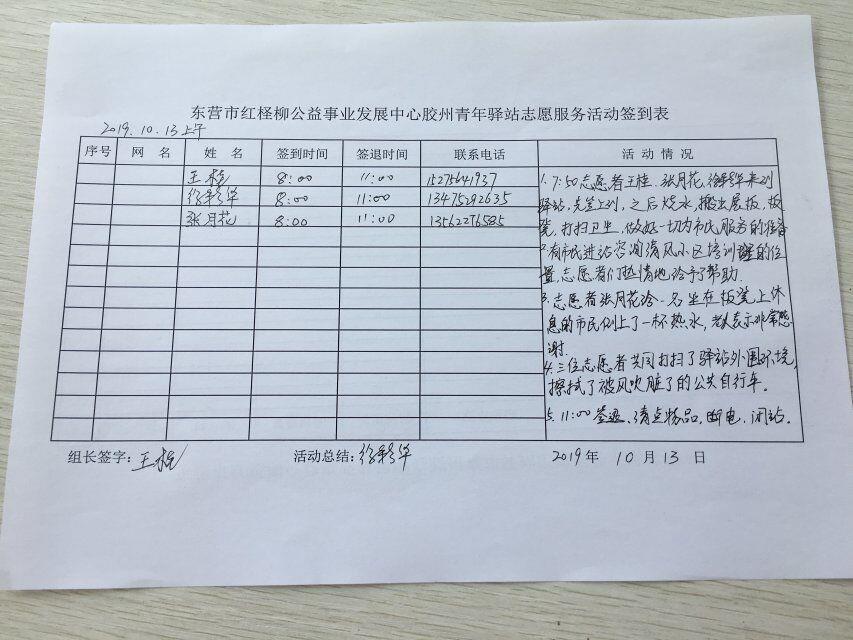 东营市红柽柳公益事业发展中心胶州青年驿站志愿服务活动签到表
2019.10.13上午
序号 网名 姓名 签到时间 签退时间 联系电话 活动情况
王桂 8:00 11:00 15275641937
徐彩华 8:00 11:00 13475292635
张月花 8:00 11:00 13562276585
1. 7:50志愿者王桂、张月花、徐彩华来到
驿站,先签上到,之后烧水,搬出展板、板
凳,打扫卫生,做好一切为市民服务的准备
2.有市民进站咨询清风小区培训的位
置,志愿者们热情地给予了帮助.
3.志愿者张月花给一名坐在板凳上休
息的市民倒上了一杯热水,老人表示非常感
谢.
4.三位志愿者共同打扫了驿站外围环境,
擦拭了被风吹脏了的公共自行车.
5. 11:00签退、清点物品,断电、闭站.
组长签字:王桂 活动总结:徐彩华 2019年10月13日